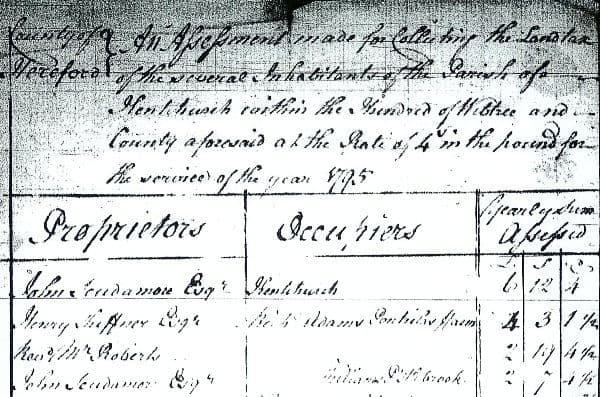 County of Hereford } An Assessment made for Collecting the Landtax
of the several Inhabitants of the Parish of
Kentchurch within the Hundred of Webtree and
County aforesaid at the Rate of 4s in the pound for
the service of the year 1795
Proprietors Occupiers Yearly Sum Assessed
John Scudamore Esqr Kentchurch 6 12 4
Henry Esqr Adams farm 4 3 1½
Revd Mr Roberts 2 19 4½
John Scudamore Esqr 2 7 4½